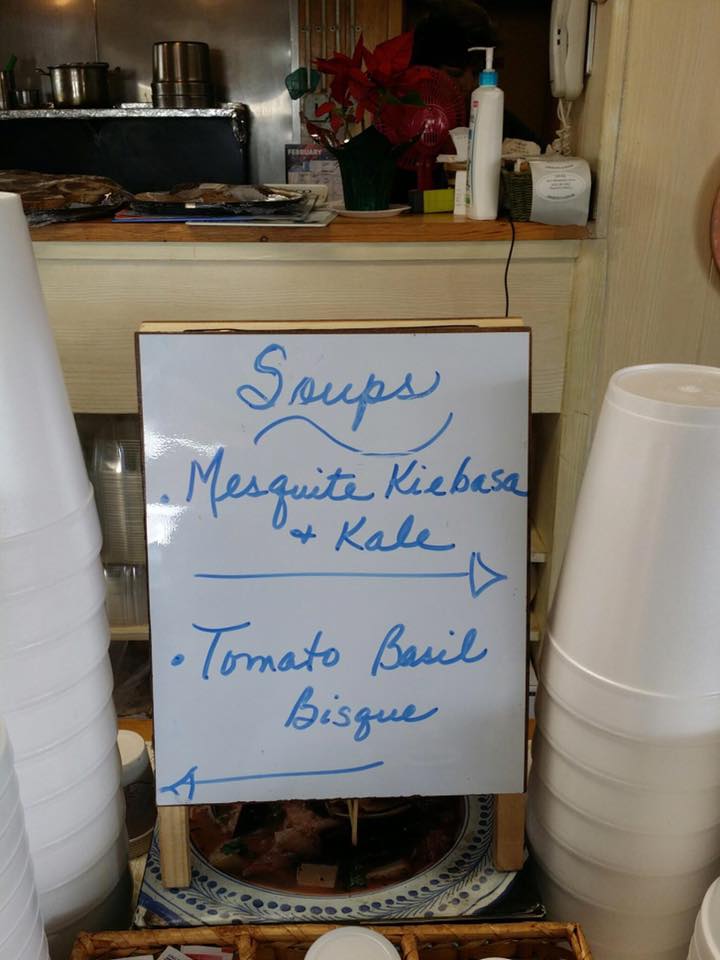 FEBRUARY
Soups
• Mesquite Kiebasa
+ Kale
• Tomato Basil
Bisque